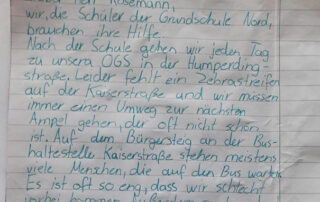 Rosemann,
wir, die Schüler der Grundschule Nord,
brauchen ihre Hilfe.
Nach der Schule gehen wir jeden Tag
zu unsera OGS in der Humperding-
straße. Leider fehlt ein Zebrastreifen
auf der Kaiserstraße und wir müssen
immer einen Umweg zur nächsten
Ampel gehen, der oft nicht schön
ist. Auf dem Bürgersteig an der Bus-
haltestelle Kaiserstraße stehen meistens
viele Menschen, die auf den Bus warten.
Es ist oft so eng, dass wir schlecht
vorbei kommen.